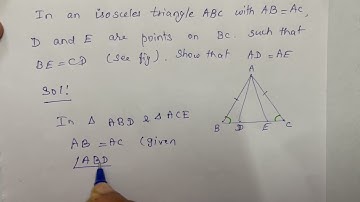 In an isosceles triangle ABC with AB = AC,
D and E are points on BC. such that
BE = CD (see fig). Show that AD = AE
Sol!
In △ ABD & △ ACE
AB = AC (given
∠ABD
A
B D E C